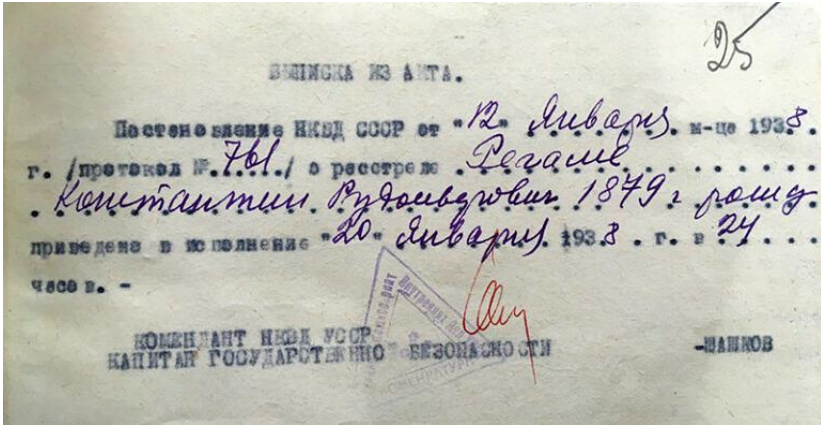 25
ВЫПИСКА ИЗ АКТА.
Постановление НКВД СССР от "12" Января м-ца 1938.
г. /протокол №.761./ о расстреле Регаме
Константин Рудольфович 1879 г рожд
приведено в исполнение "20" Января 1938. г. в 24
часов. -
КОМЕНДАНТ НКВД УССР
КАПИТАН ГОСУДАРСТВЕННО БЕЗОПАСНОСТИ -ШАШКОВ
Внутренних
КОМЕНДАТУРА